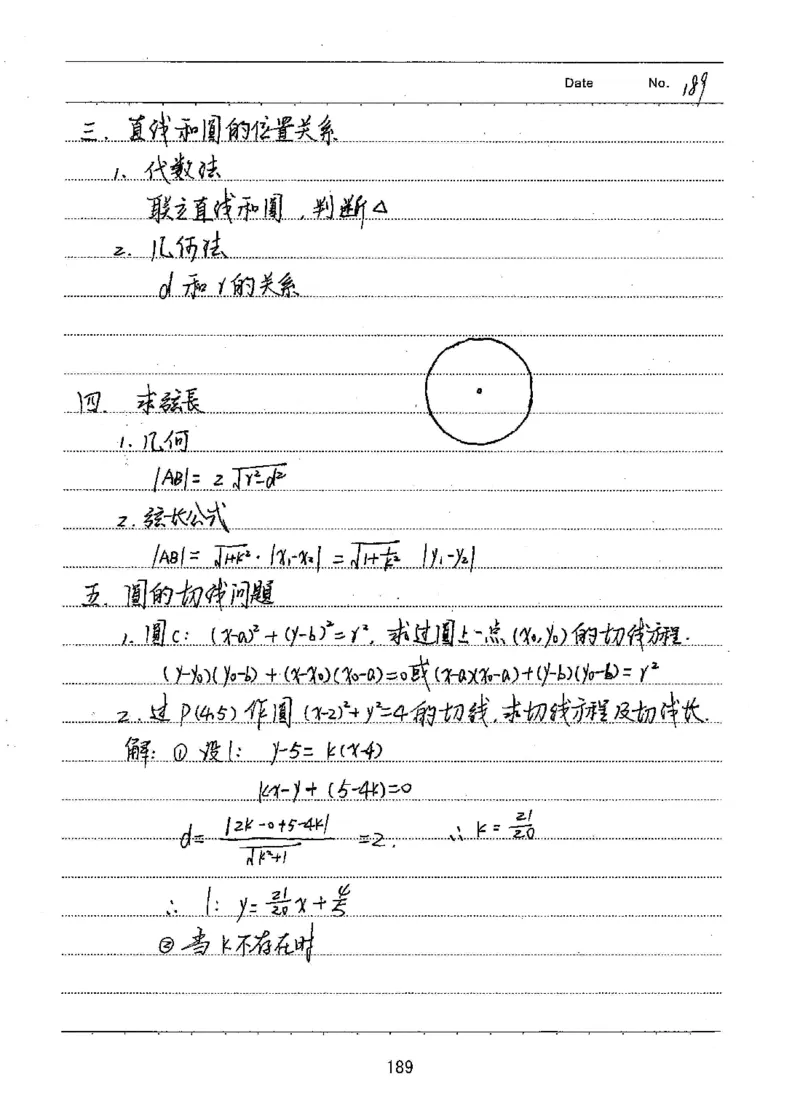 Date No. 189
三. 直线和圆的位置关系
1. 代数法
联立直线和圆，判断△
2. 几何法
d 和 r 的关系
四. 求弦長
1. 几何
|AB|= 2√(r²-d²)
2. 弦长公式
|AB|= √(1+k²)·|x₁-x₂| = √(1+1/k²) |y₁-y₂|
五. 圆的切线问题
1. 圆C: (x-a)²+(y-b)²=r², 求过圆上一点(x₀,y₀)的切线方程.
(y-y₀)(y₀-b)+(x-x₀)(x₀-a)=0或(x-a)(x₀-a)+(y-b)(y₀-b)=r²
2. 过P(4,5)作圆(x-2)²+y²=4的切线,求切线方程及切线长.
解: ① 设l: y-5=k(x-4)
kx-y+(5-4k)=0
d= |2k-0+5-4k|/√(k²+1) =2. ∴ k=21/20
∴ l: y=21/20 x+4/5
② 当k不存在时
189